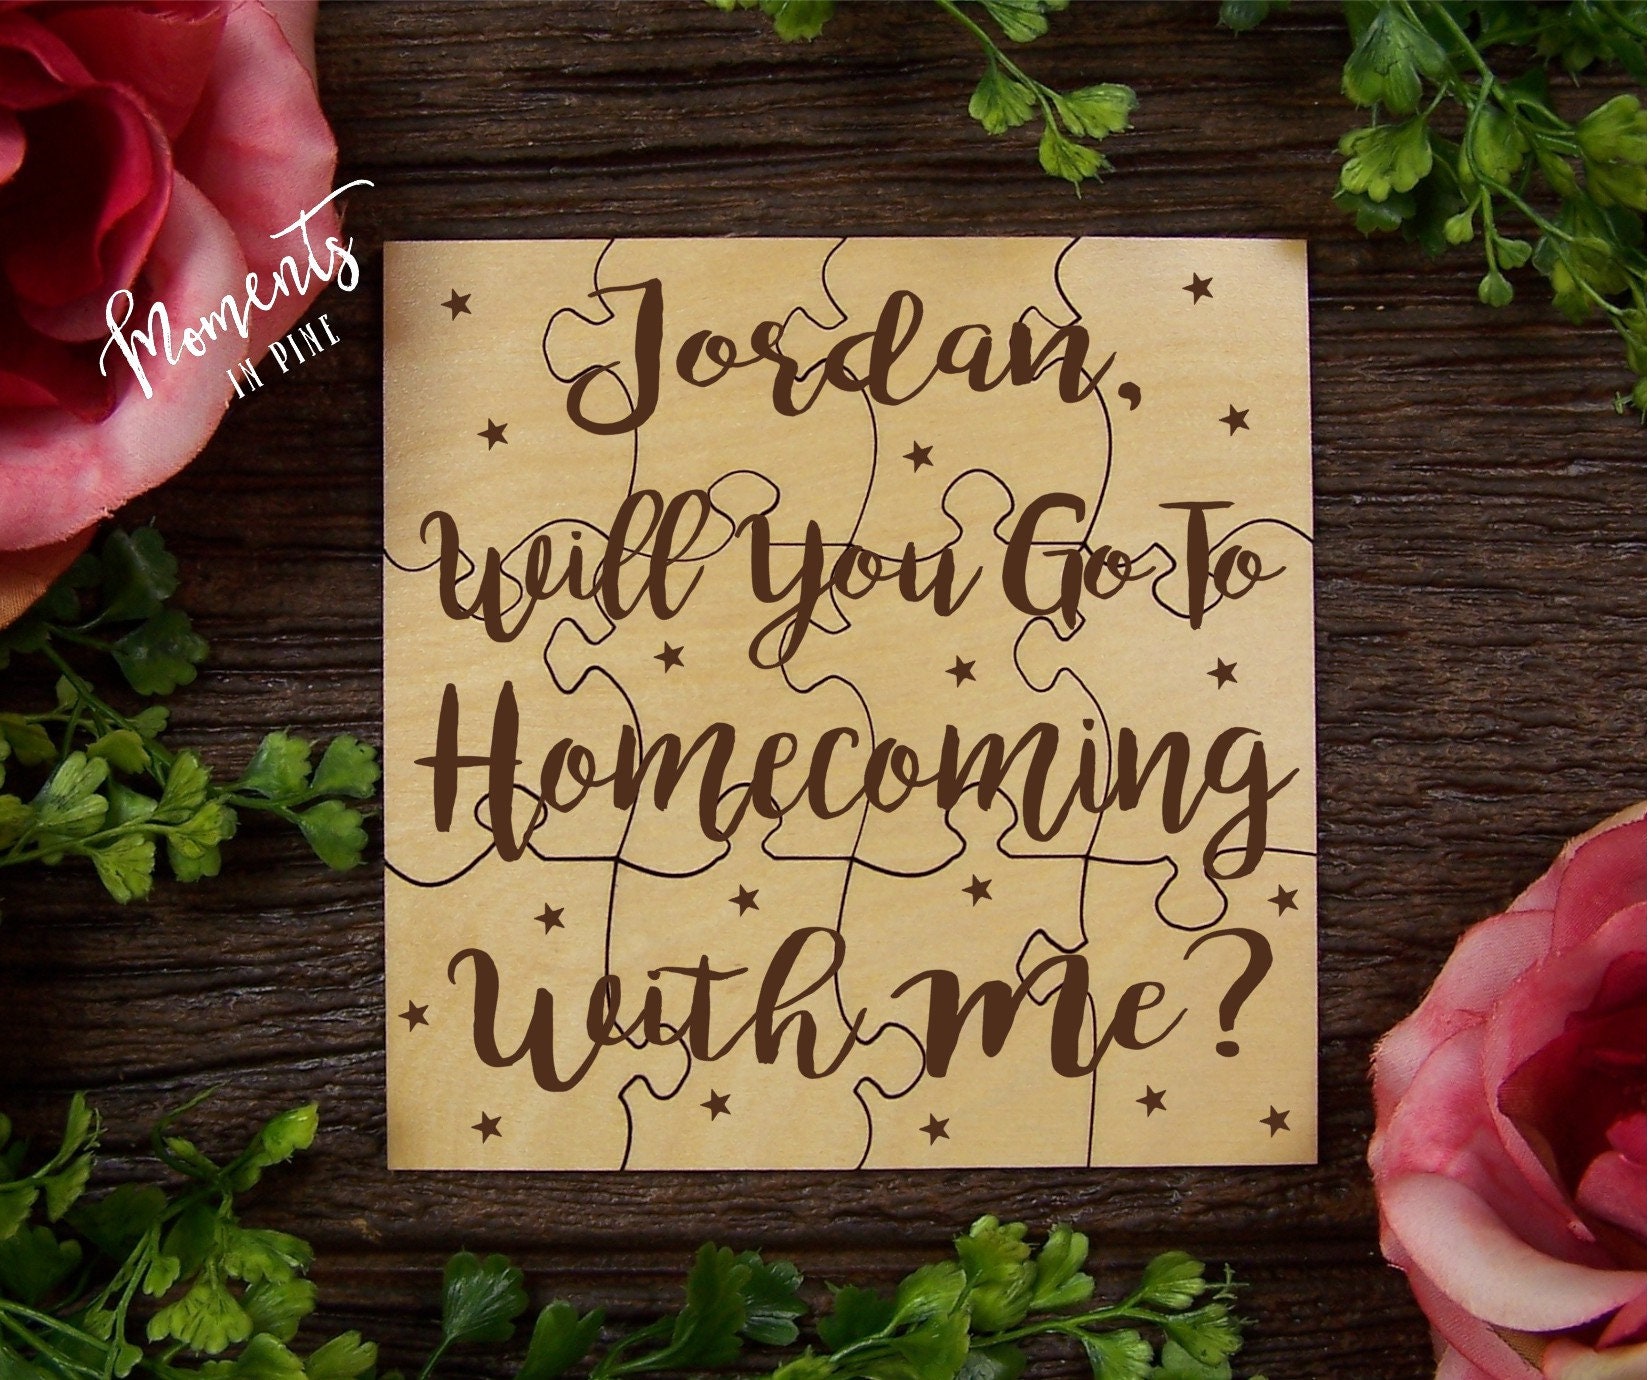 Moments
IN PINE
Jordan,
Will You Go To
Homecoming
With Me?